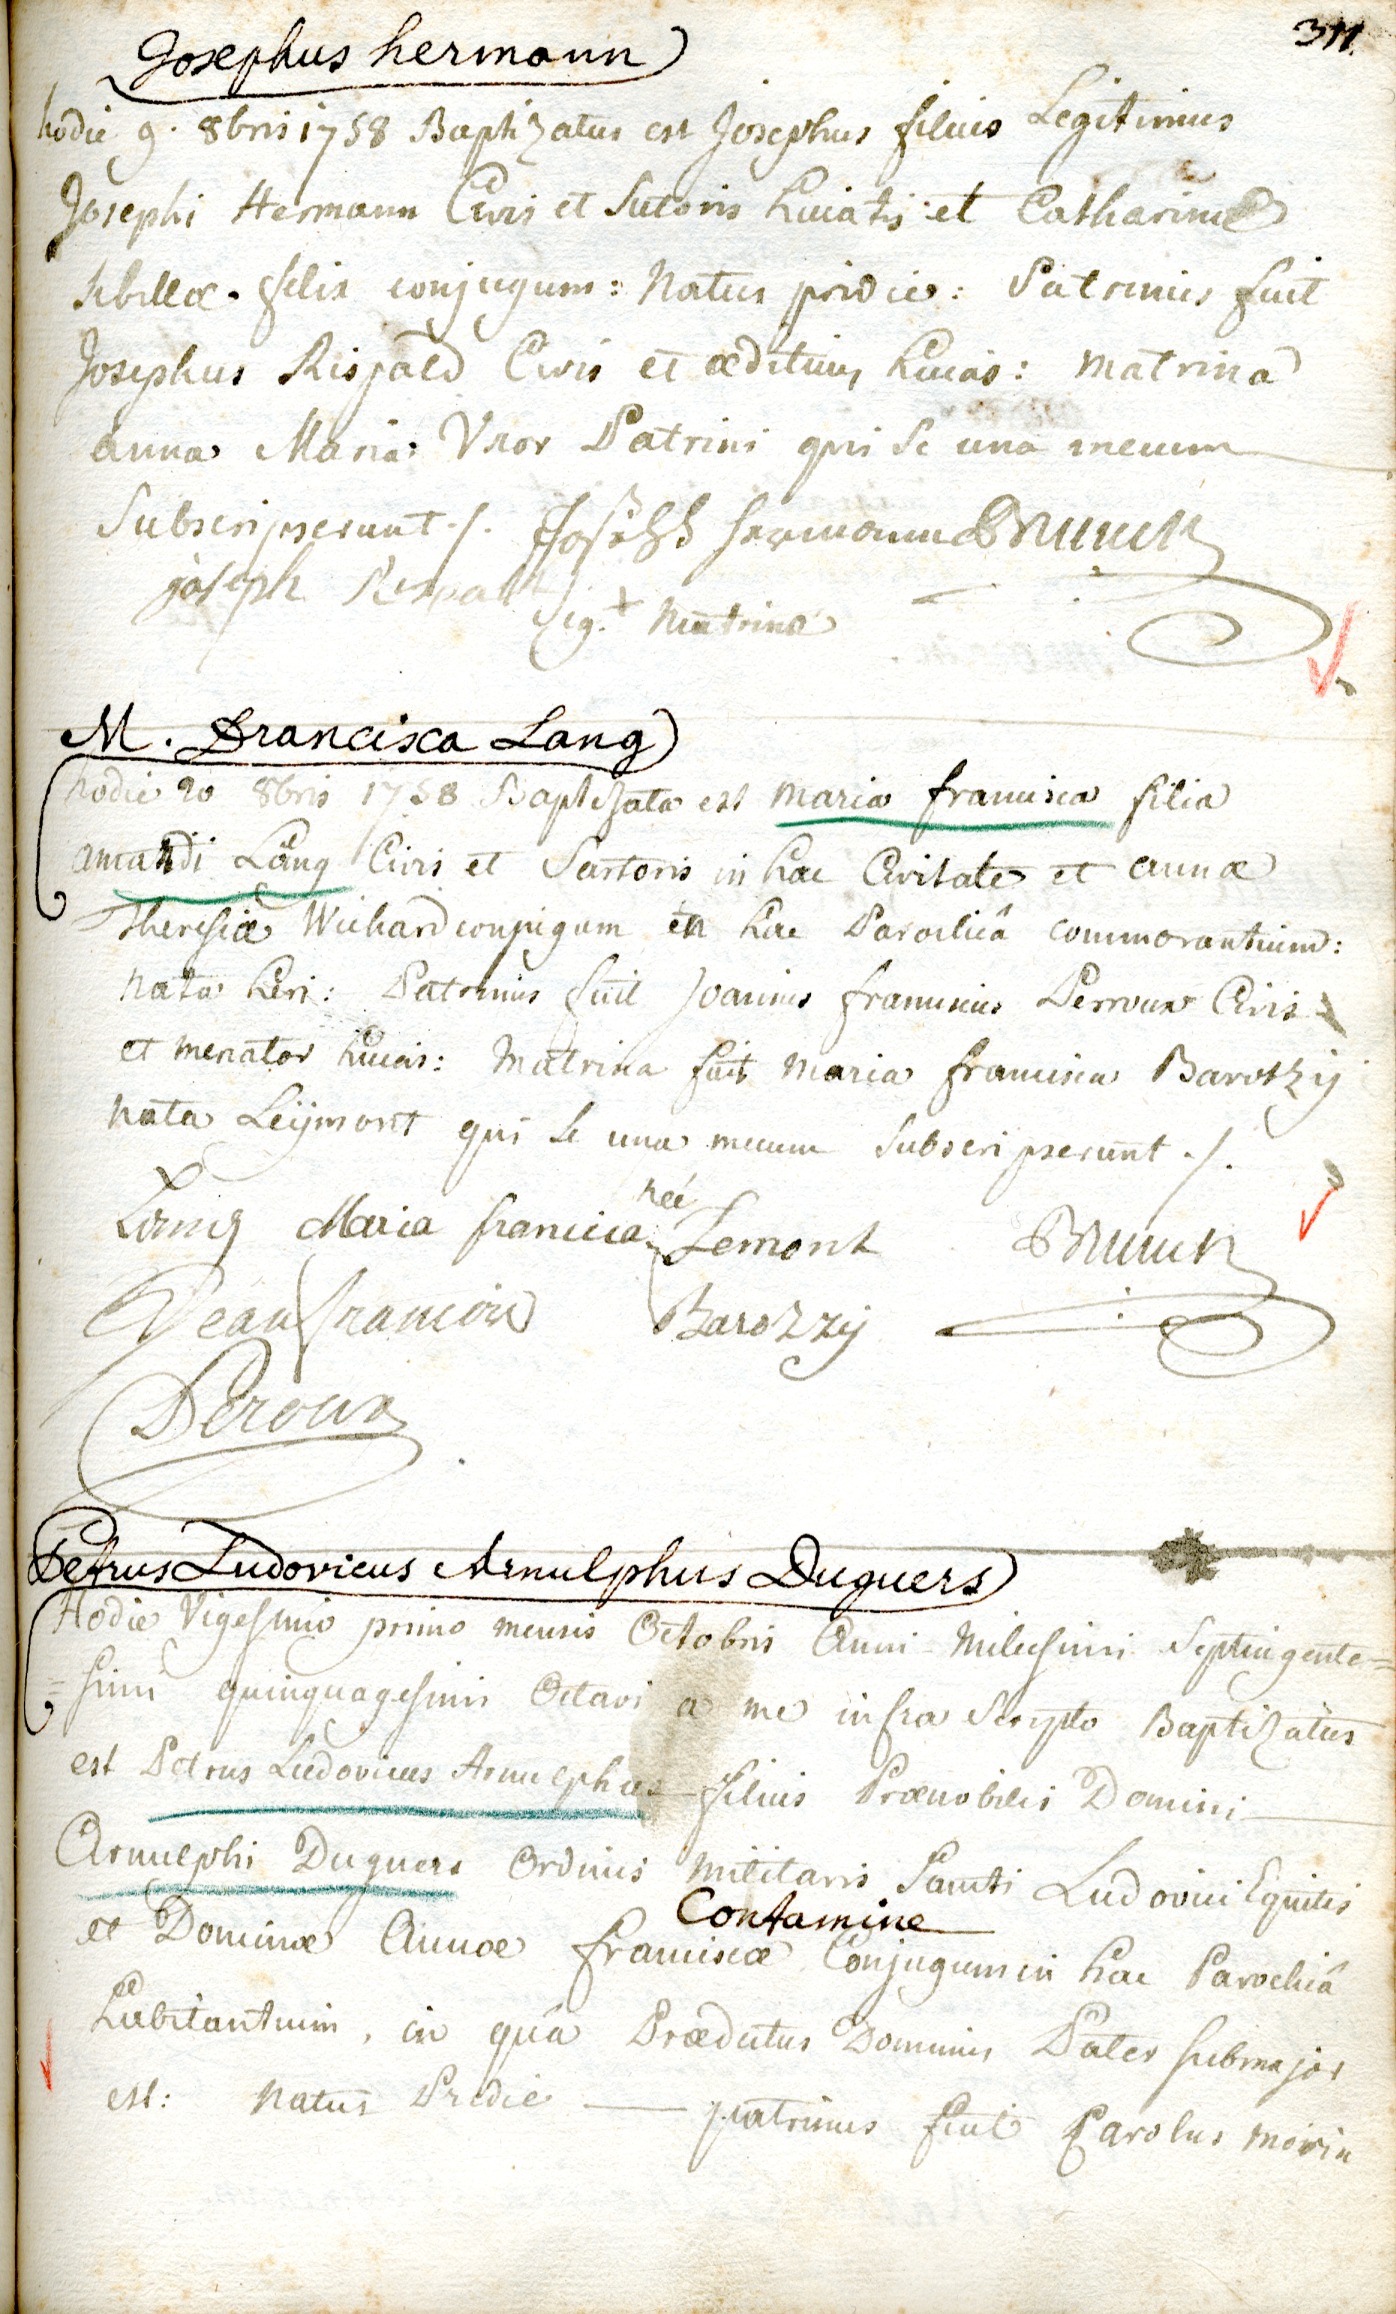 311.
Josephus hermann
hodie 9. 8bris 1758 Baptizatus est Josephus filius Legitimus
Josephi Hermann Civis et Sutoris huiatis et Catharinæ
Sibillæ felix conjugum: natus pridie: Patrinus fuit
Josephus Rispald Civis et ædituus huias: matrina
anna Maria Uxor Patrini qui se una mecum
Subscripserunt ./. Joseph hermann Brunck
joseph Rispalt
Sig. + Matrinæ
M. Francisca Lang
hodie 20 8bris 1758 Baptizata est maria francisca filia
amandi Lang Civis et Sartoris in hac Civitate et annæ
Theresiæ Wichard conjugum in hac Parochiâ commorantium:
nata heri: Patrinus fuit Joannes franciscus Perroux Civis
et mercator huias: Matrina fuit maria francisca Barozzy
nata Leymont qui se una mecum Subscripserunt ./.
Lang Maria francica neé Lemont Brunck
Jean francois Barozzy
Peroux
Petrus Ludovicus Arnulphus Duguers
Hodie Vigesimo primo mensis Octobris Anni Millesimi Septingente=
=simi quinquagesimi Octavi a me infra Scripto Baptizatus
est Petrus Ludovicus Arnulphus filius Prænobilis Domini
Arnulphi Duguers Ordinis Militaris Sancti Ludovici Equitis
Contamine
et Dominæ Annæ franciscæ Conjugum in hac Parochiâ
habitantium, in quâ Prædictus Dominus Pater submajor
est: natus Pridie — patrinus fuit Carolus morin